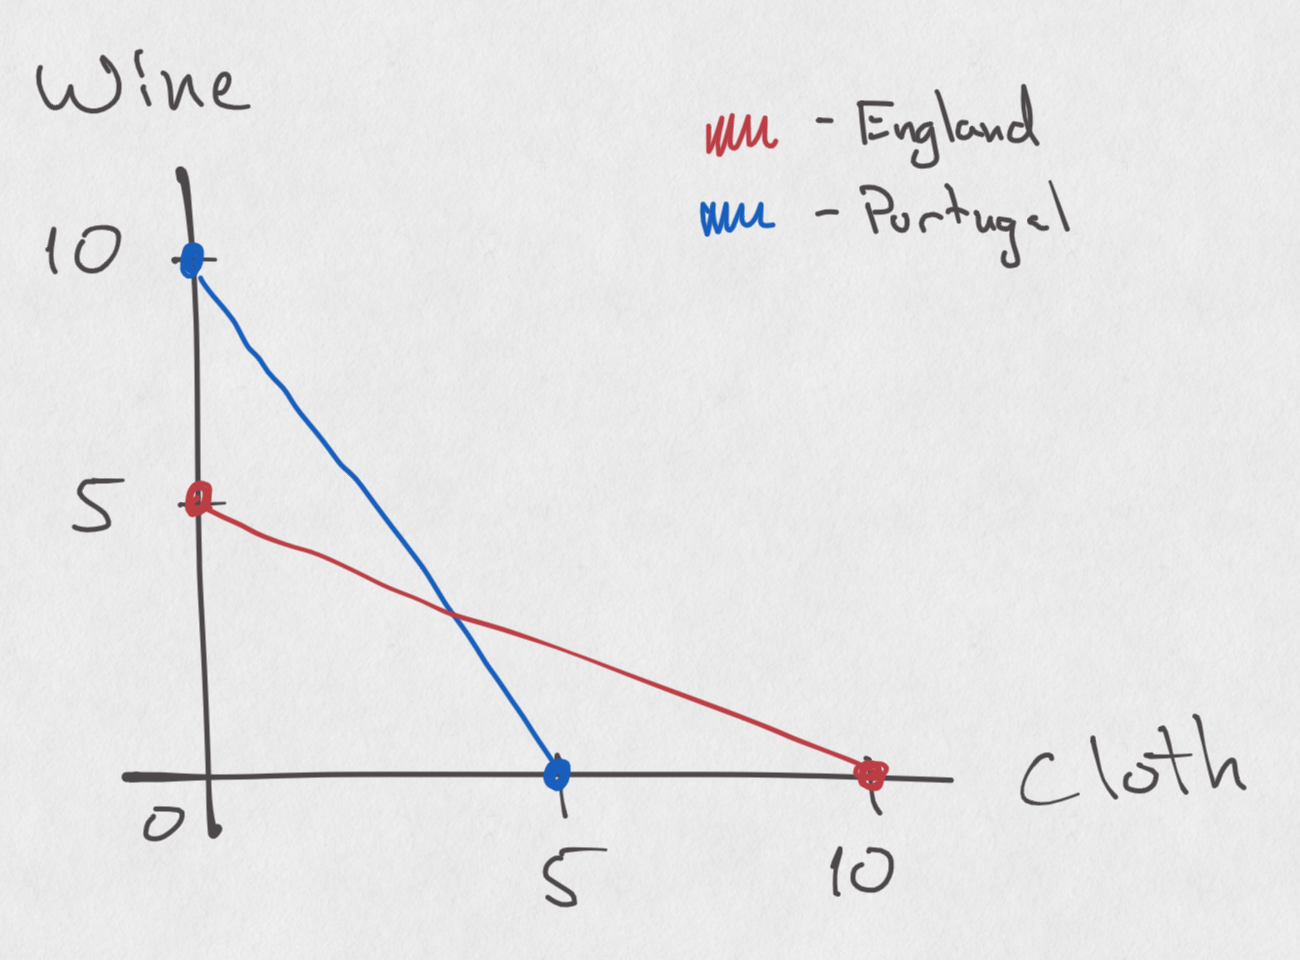 Wine
- England
- Portugal
10
5
0
5
10
Cloth